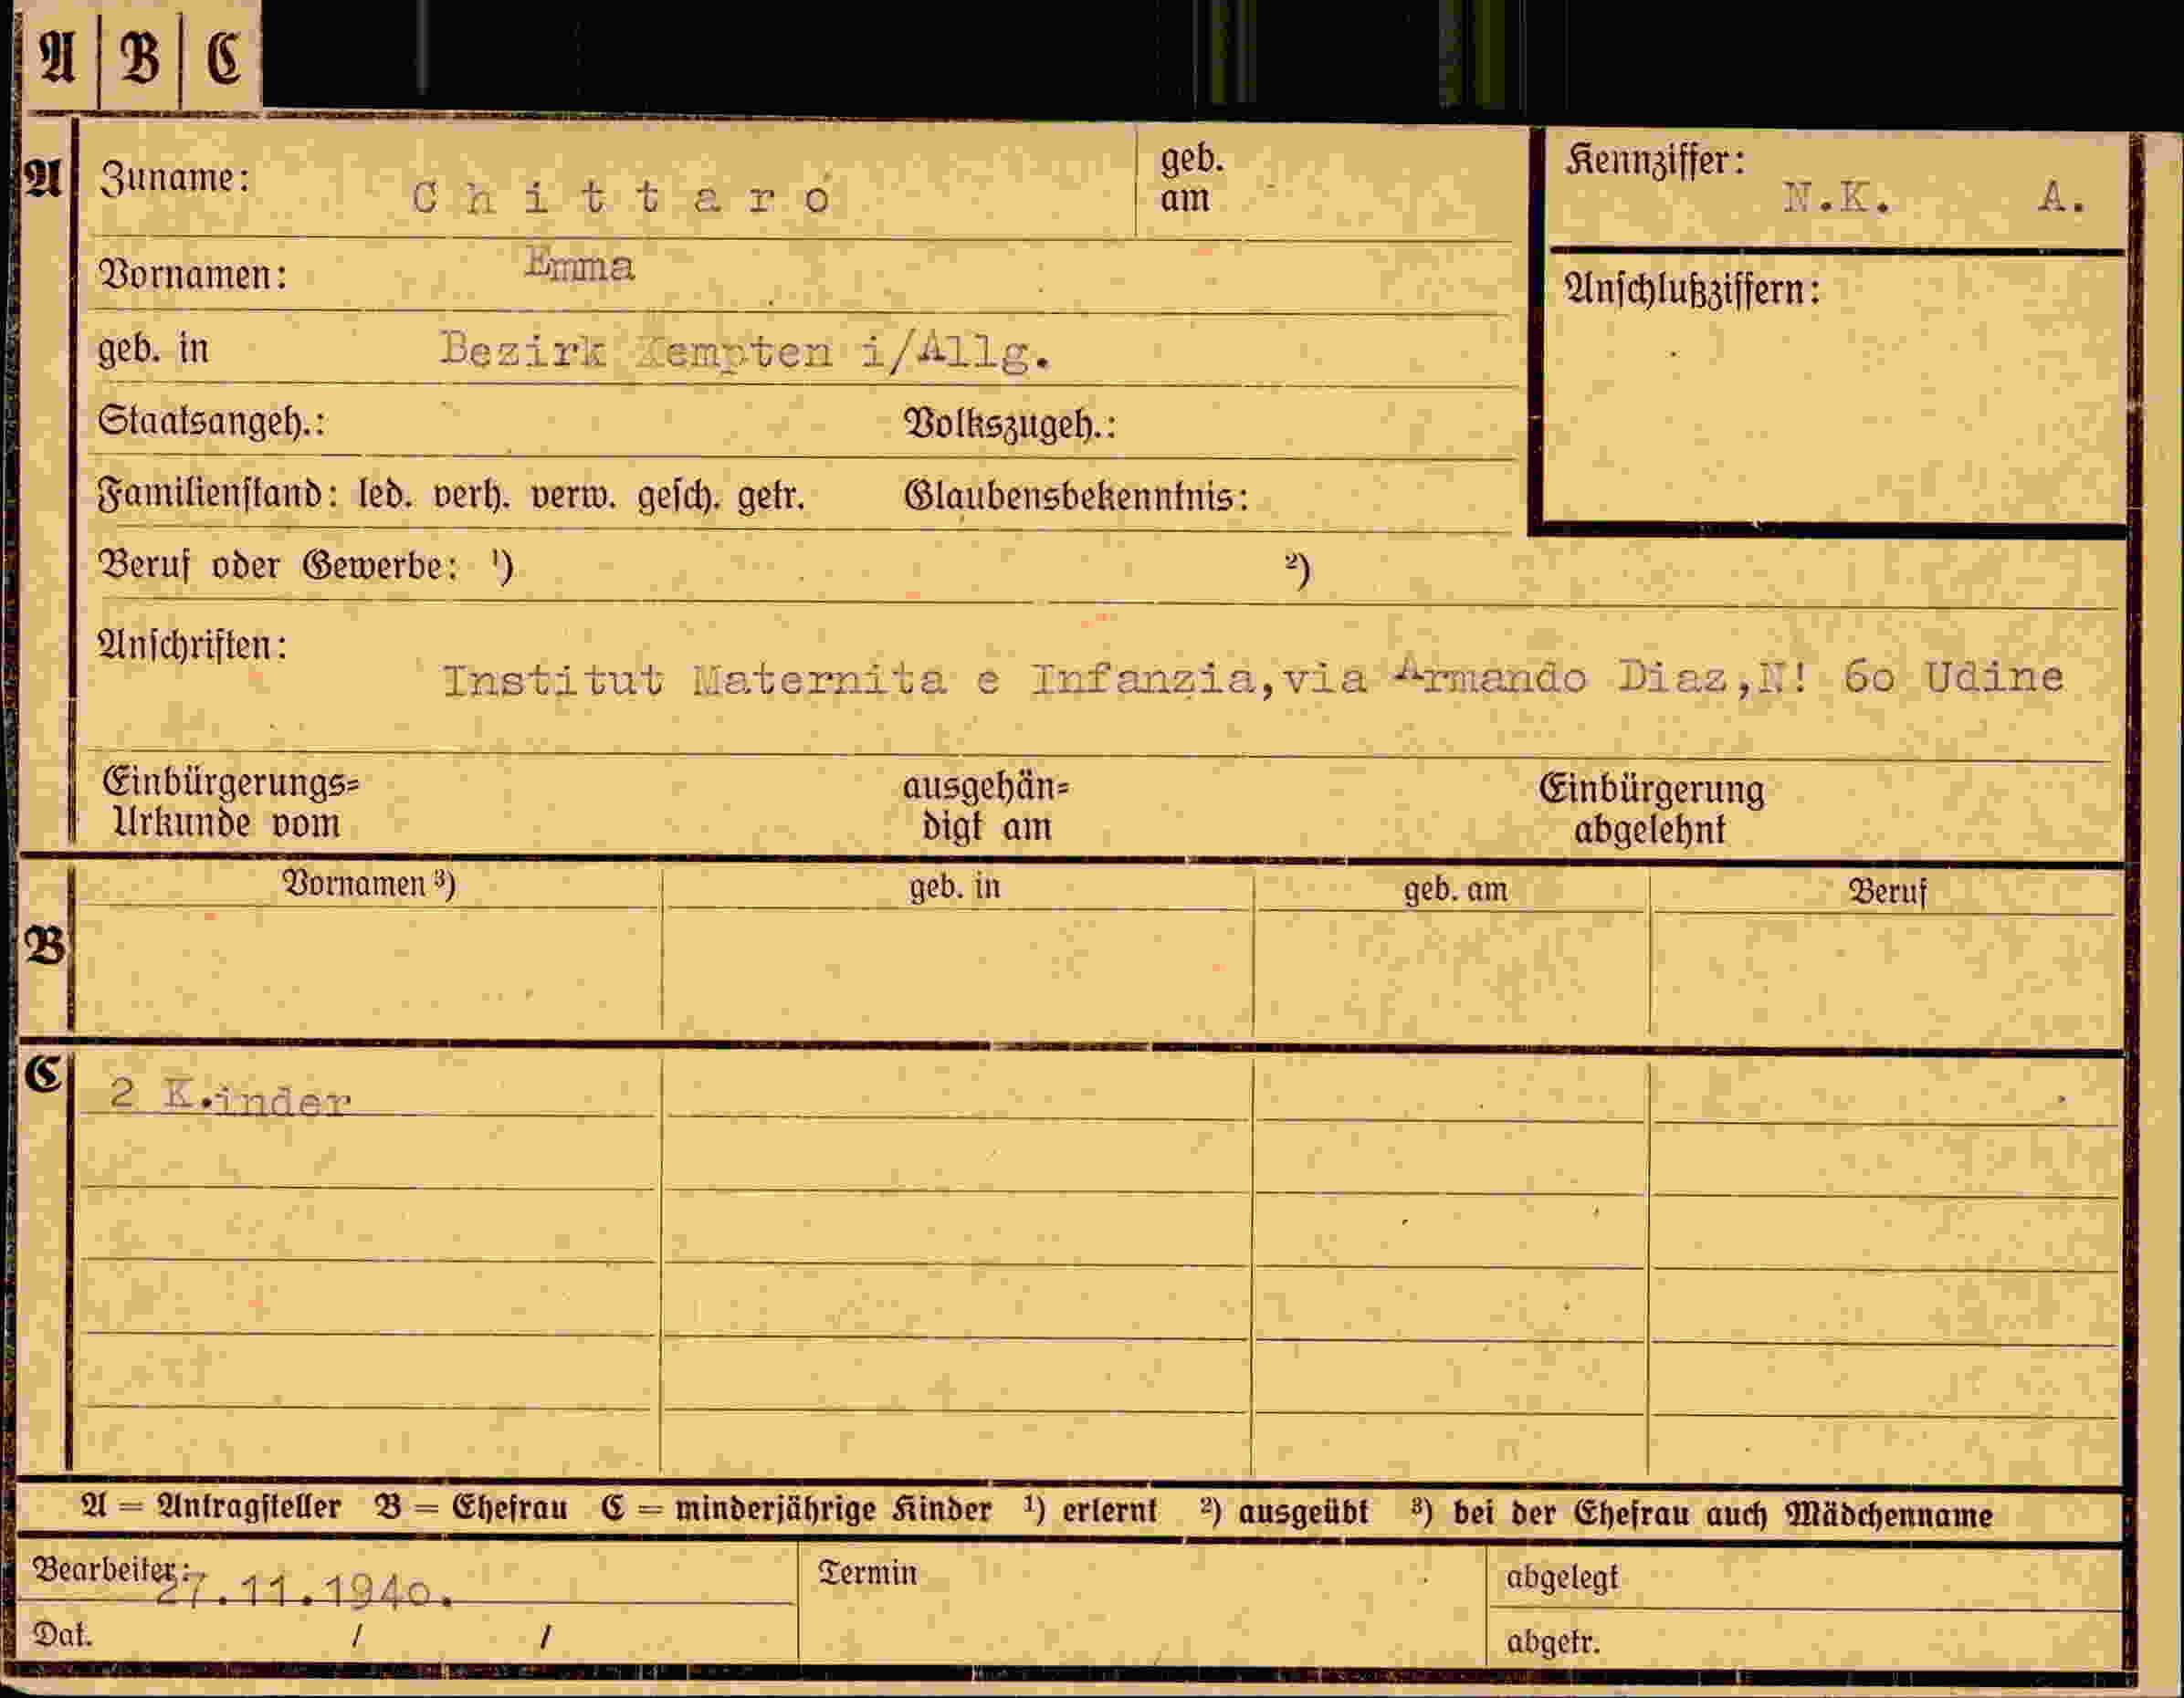 A B C
A Zuname: Chittaro geb. am Kennziffer: N.K. A.
Vornamen: Emma
Anschlußziffern:
geb. in Bezirk Kempten i/Allg.
Staatsangeh.: Volkszugeh.:
Familienstand: led. verh. verw. gesch. getr. Glaubensbekenntnis:
Beruf oder Gewerbe: ¹) ²)
Anschriften:
Institut Maternita e Infanzia,via Armando Diaz,N! 6o Udine
Einbürgerungs= ausgehän= Einbürgerung
Urkunde vom digt am abgelehnt
Vornamen ³) geb. in geb. am Beruf
B
C 2 K.inder
A = Antragsteller B = Ehefrau C = minderjährige Kinder ¹) erlernt ²) ausgeübt ³) bei der Ehefrau auch Mädchenname
Bearbeiter: 27.11.194o. Termin abgelegt
Dat. / / abgetr.